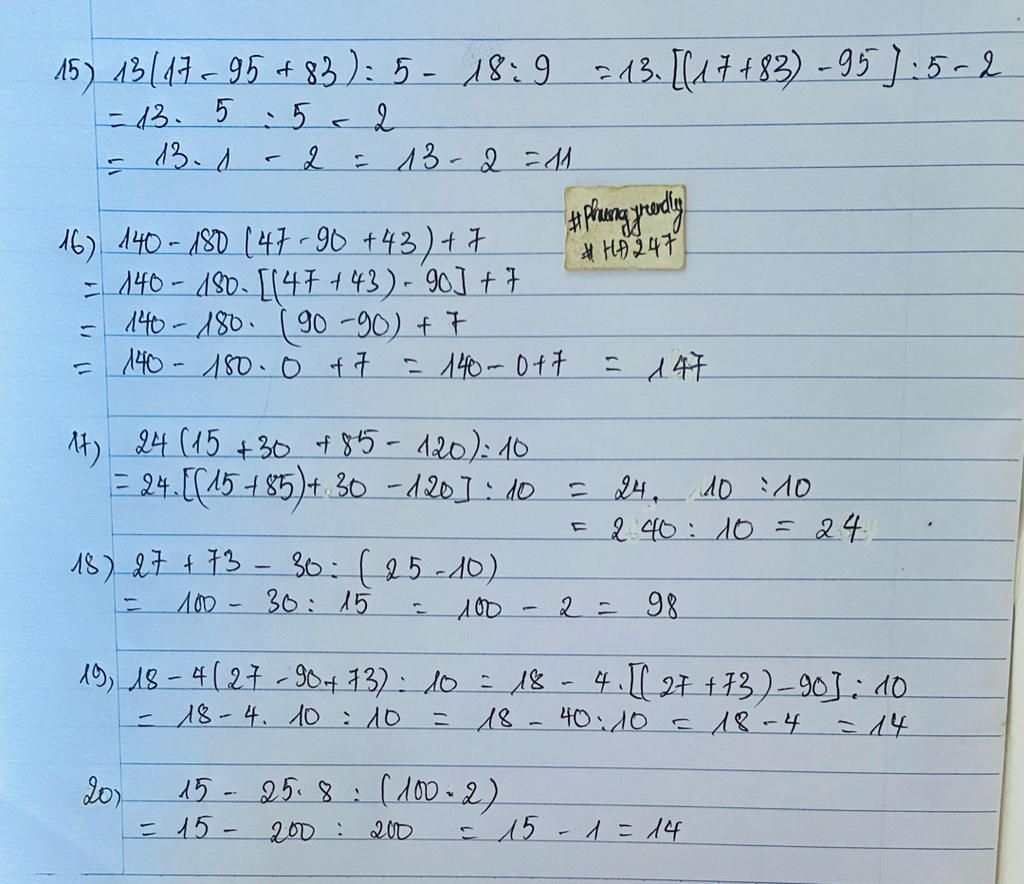 15) 13(17 - 95 + 83) : 5 - 18 : 9 = 13. [(17 + 83) - 95] : 5 - 2
= 13. 5 : 5 - 2
= 13. 1 - 2 = 13 - 2 = 11
#Phungyrendly
# HĐ247
16) 140 - 180 (47 - 90 + 43) + 7
= 140 - 180. [(47 + 43) - 90] + 7
= 140 - 180. (90 - 90) + 7
= 140 - 180. 0 + 7 = 140 - 0 + 7 = 147
17) 24 (15 + 30 + 85 - 120) : 10
= 24. [(15 + 85) + 30 - 120] : 10 = 24. 10 : 10
= 240 : 10 = 24
18) 27 + 73 - 30 : (25 - 10)
= 100 - 30 : 15 = 100 - 2 = 98
19) 18 - 4(27 - 90 + 73) : 10 = 18 - 4. [(27 + 73) - 90] : 10
= 18 - 4. 10 : 10 = 18 - 40 : 10 = 18 - 4 = 14
20) 15 - 25. 8 : (100. 2)
= 15 - 200 : 200 = 15 - 1 = 14